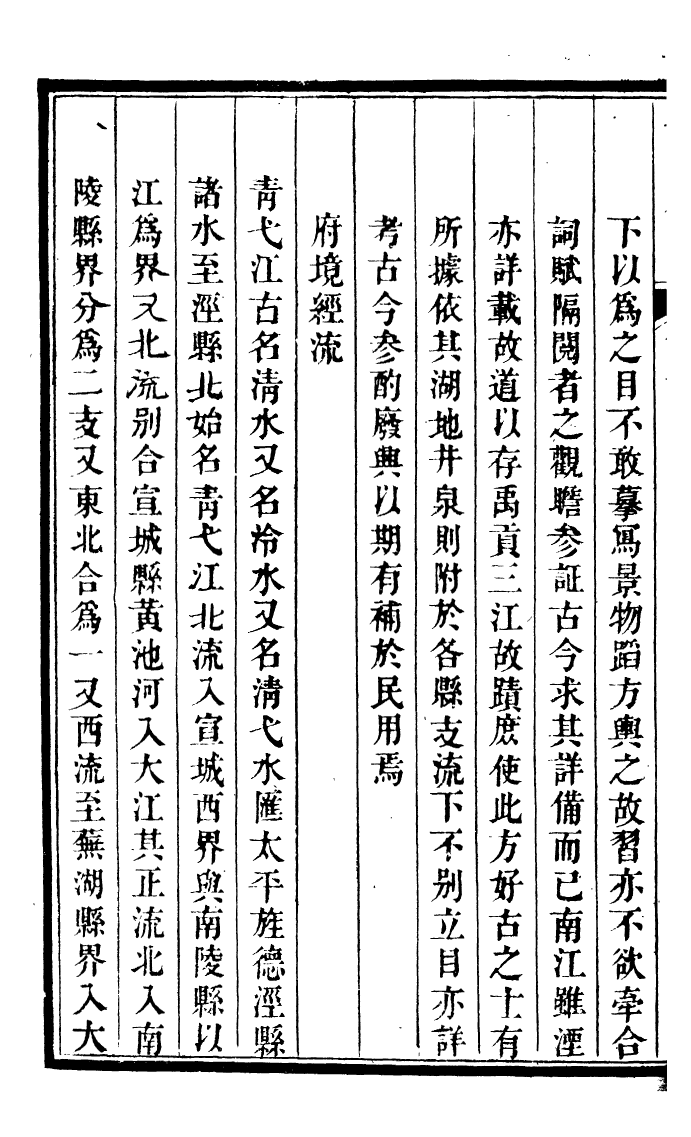 下以爲之目不敢摹寫景物蹈方輿之故習亦不欲牽合
詞賦隔閱者之觀瞻参証古今求其詳備而已南江雖湮
亦詳載故道以存禹貢三江故蹟庶使此方好古之士有
所據依其湖地井泉則附於各縣支流下不别立目亦詳
考古今參酌廢興以期有補於民用焉
府境經流
青弋江古名清水又名泠水又名清弋水匯太平旌德涇縣
諸水至涇縣北始名青弋江北流入宣城西界與南陵縣以
江爲界又北流别合宣城縣黃池河入大江其正流北入南
陵縣界分爲二支又東北合爲一又西流至蕪湖縣界入大